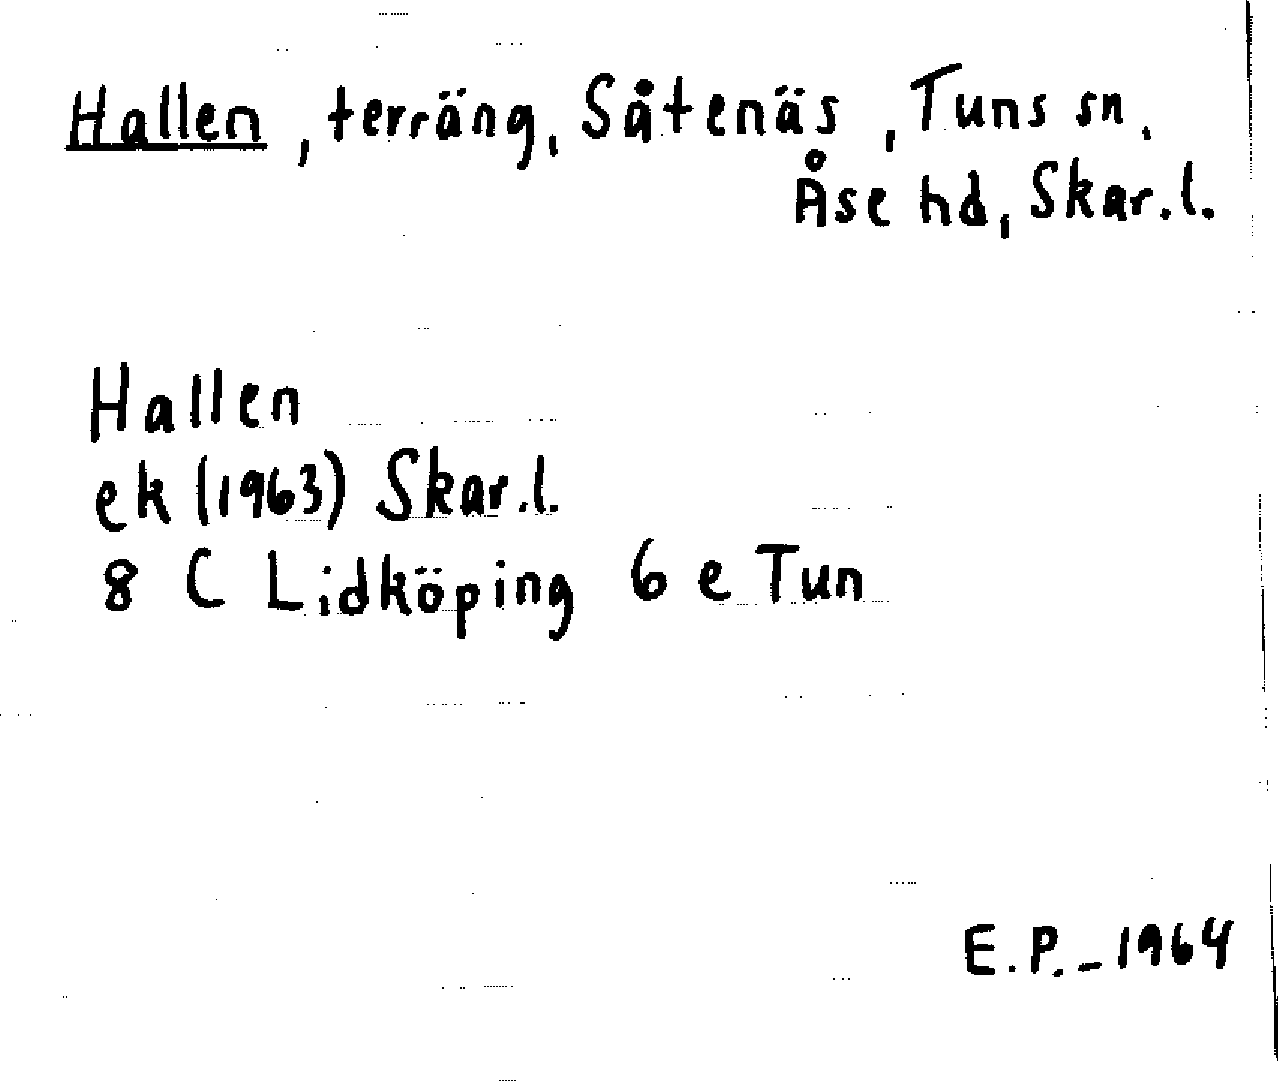 Hallen, terräng, Såtenäs, Tuns sn,
Åse hd, Skar.l.
Hallen
ek (1963) Skar.l.
8 C Lidköping 6 e Tun
E.P. - 1964